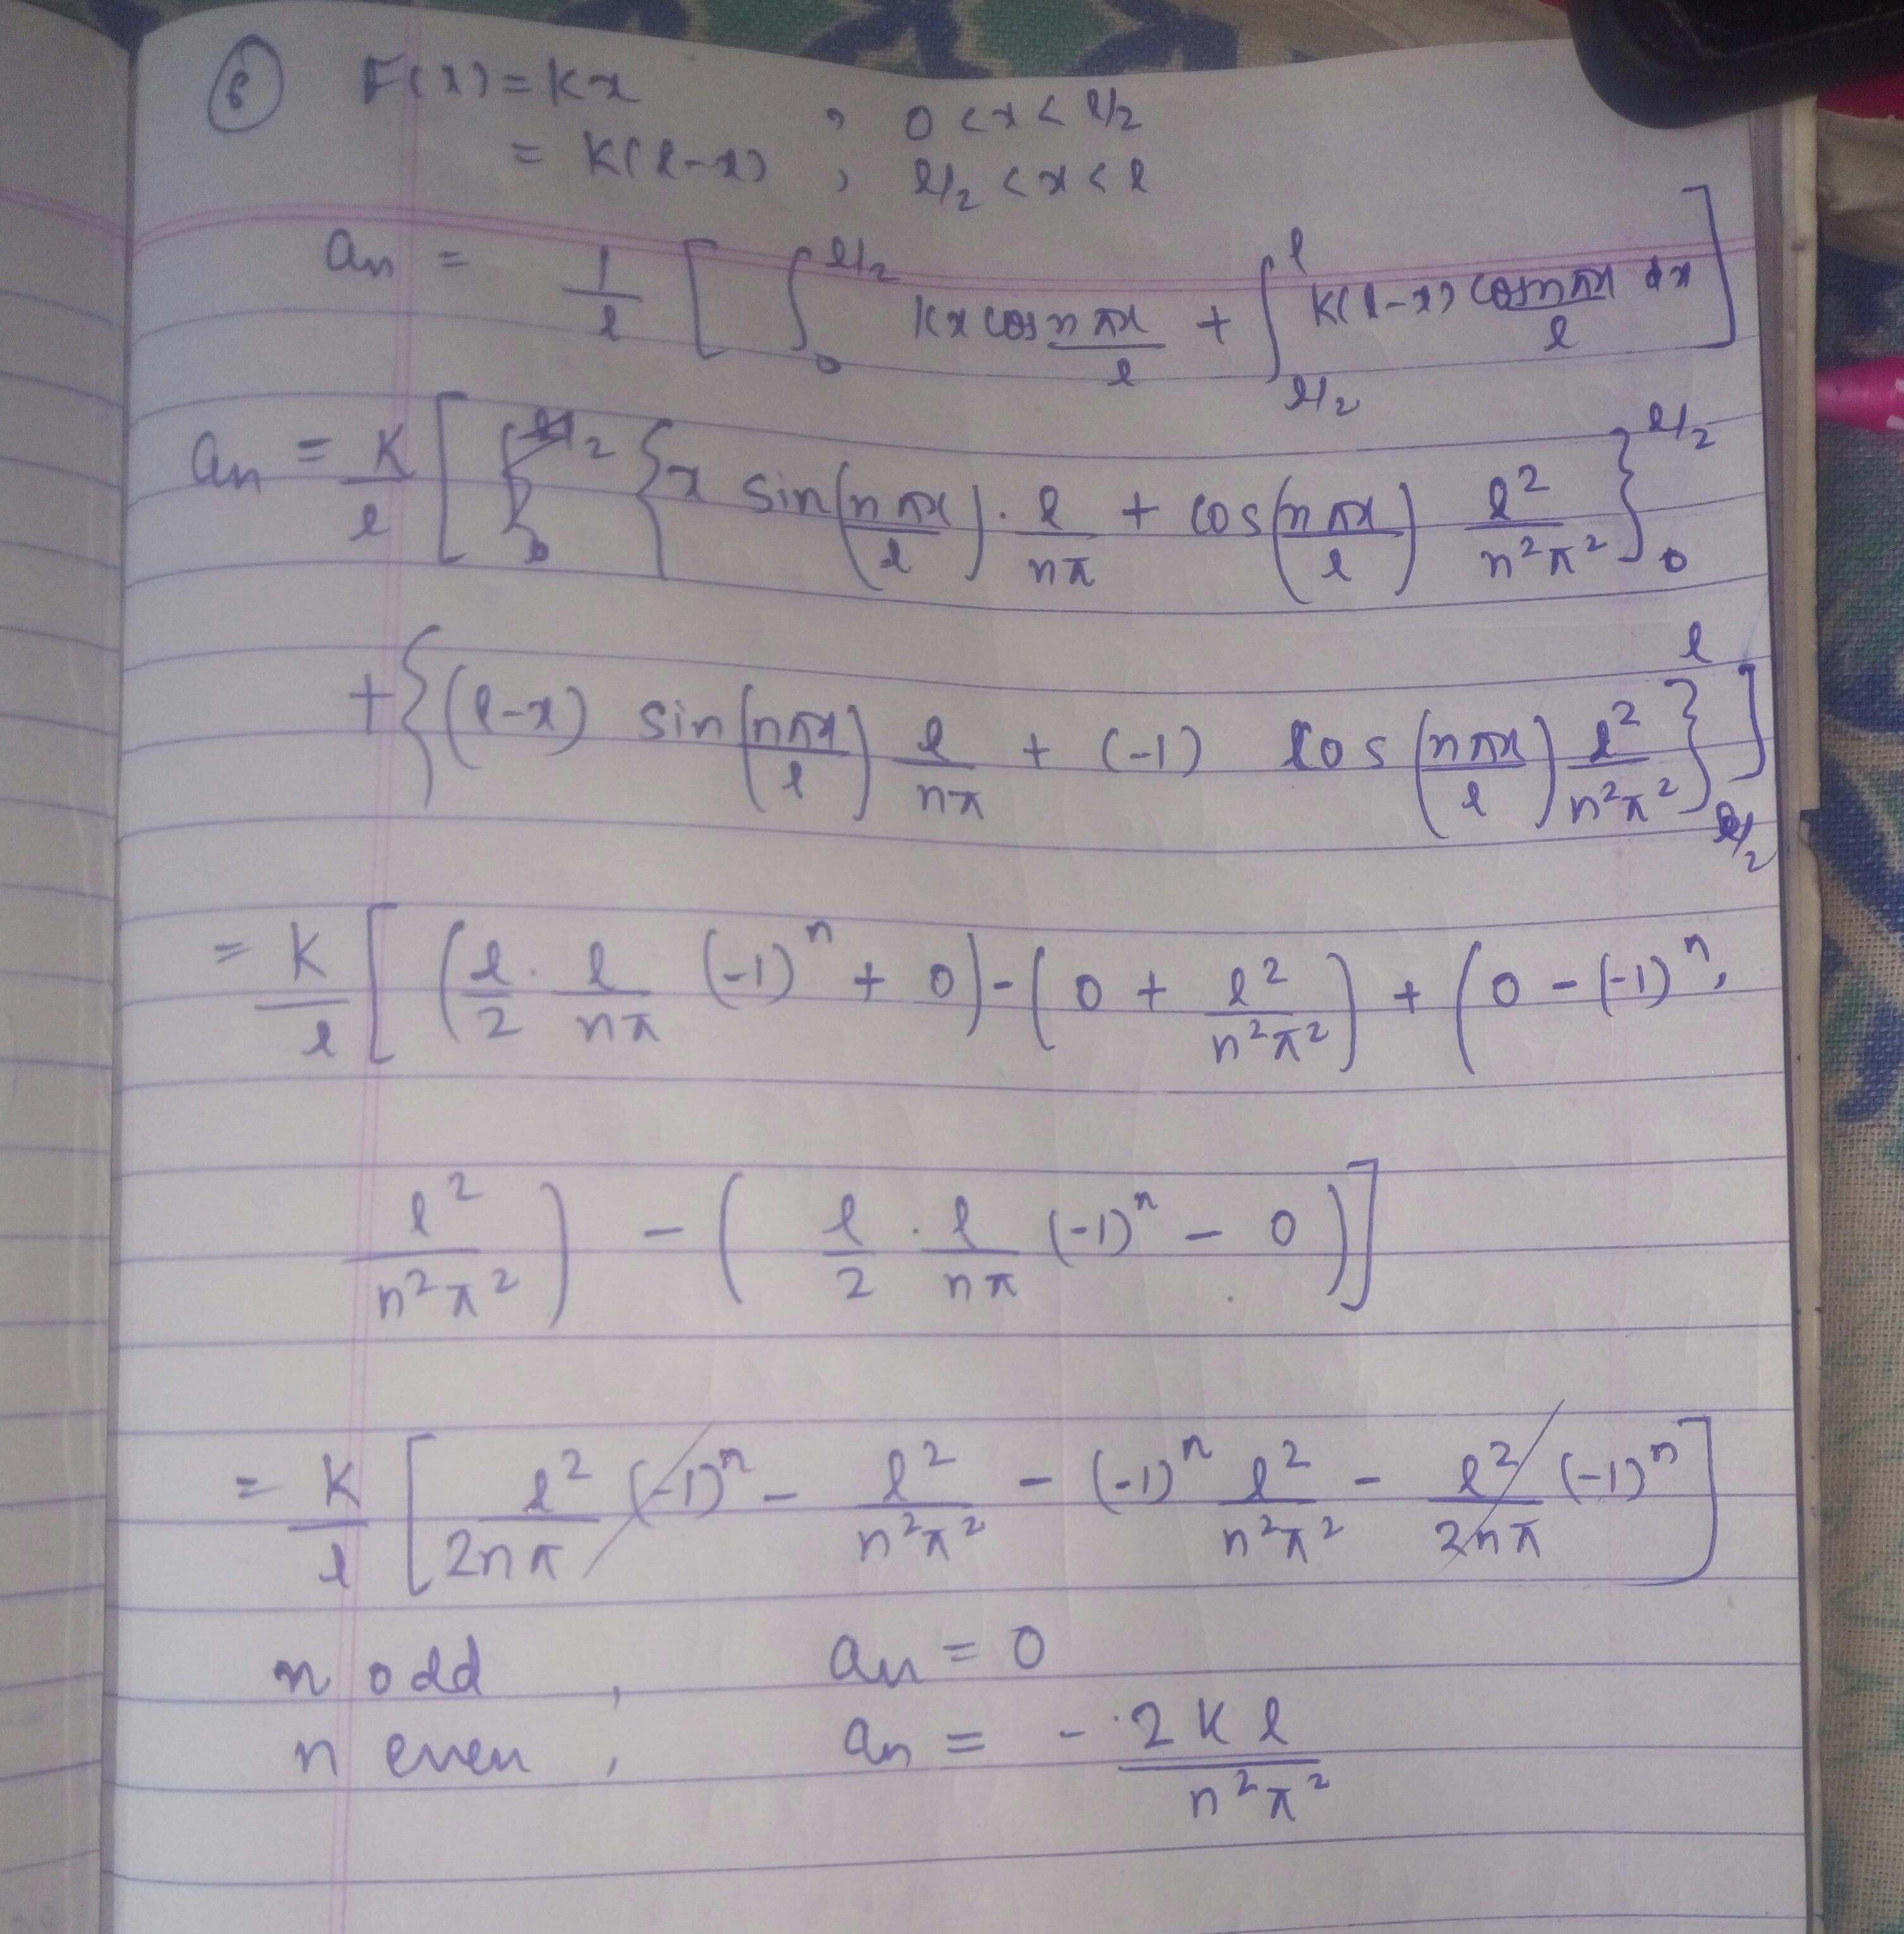 (6) F(x) = Kx , 0 < x < l/2
= K(l-x) , l/2 < x < l
an = 1/l [ ∫_0^{l/2} Kx cos nπx/l + ∫_{l/2}^{l} K(l-x) cos nπx/l dx ]
an = K/l [ { x sin(nπx/l) . l/nπ + cos(nπx/l) l²/n²π² }_0^{l/2}
+ { (l-x) sin(nπx/l) l/nπ + (-1) cos(nπx/l) l²/n²π² }_{l/2}^{l} ]
= K/l [ (l/2 . l/nπ (-1)^n + 0) - (0 + l²/n²π²) + (0 - (-1)^n .
l²/n²π² ) - ( l/2 . l/nπ (-1)^n - 0 ) ]
= K/l [ l²/2nπ (-1)^n - l²/n²π² - (-1)^n l²/n²π² - l²/2nπ (-1)^n ]
n odd , an = 0
n even , an = - 2Kl/n²π²